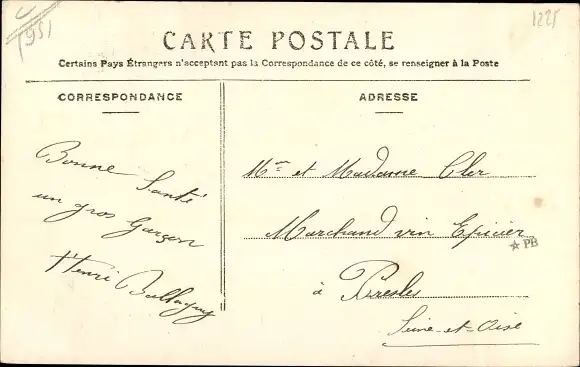 1951
1225
CARTE POSTALE
Certains Pays Étrangers n'acceptent pas la Correspondance de ce côté, se renseigner à la Poste
CORRESPONDANCE
ADRESSE
Bonne Santé
un gros Garçon
Henri
Mr et Madame Cler
Marchand vin Epicier
PB
à Presles
Seine-et-Oise